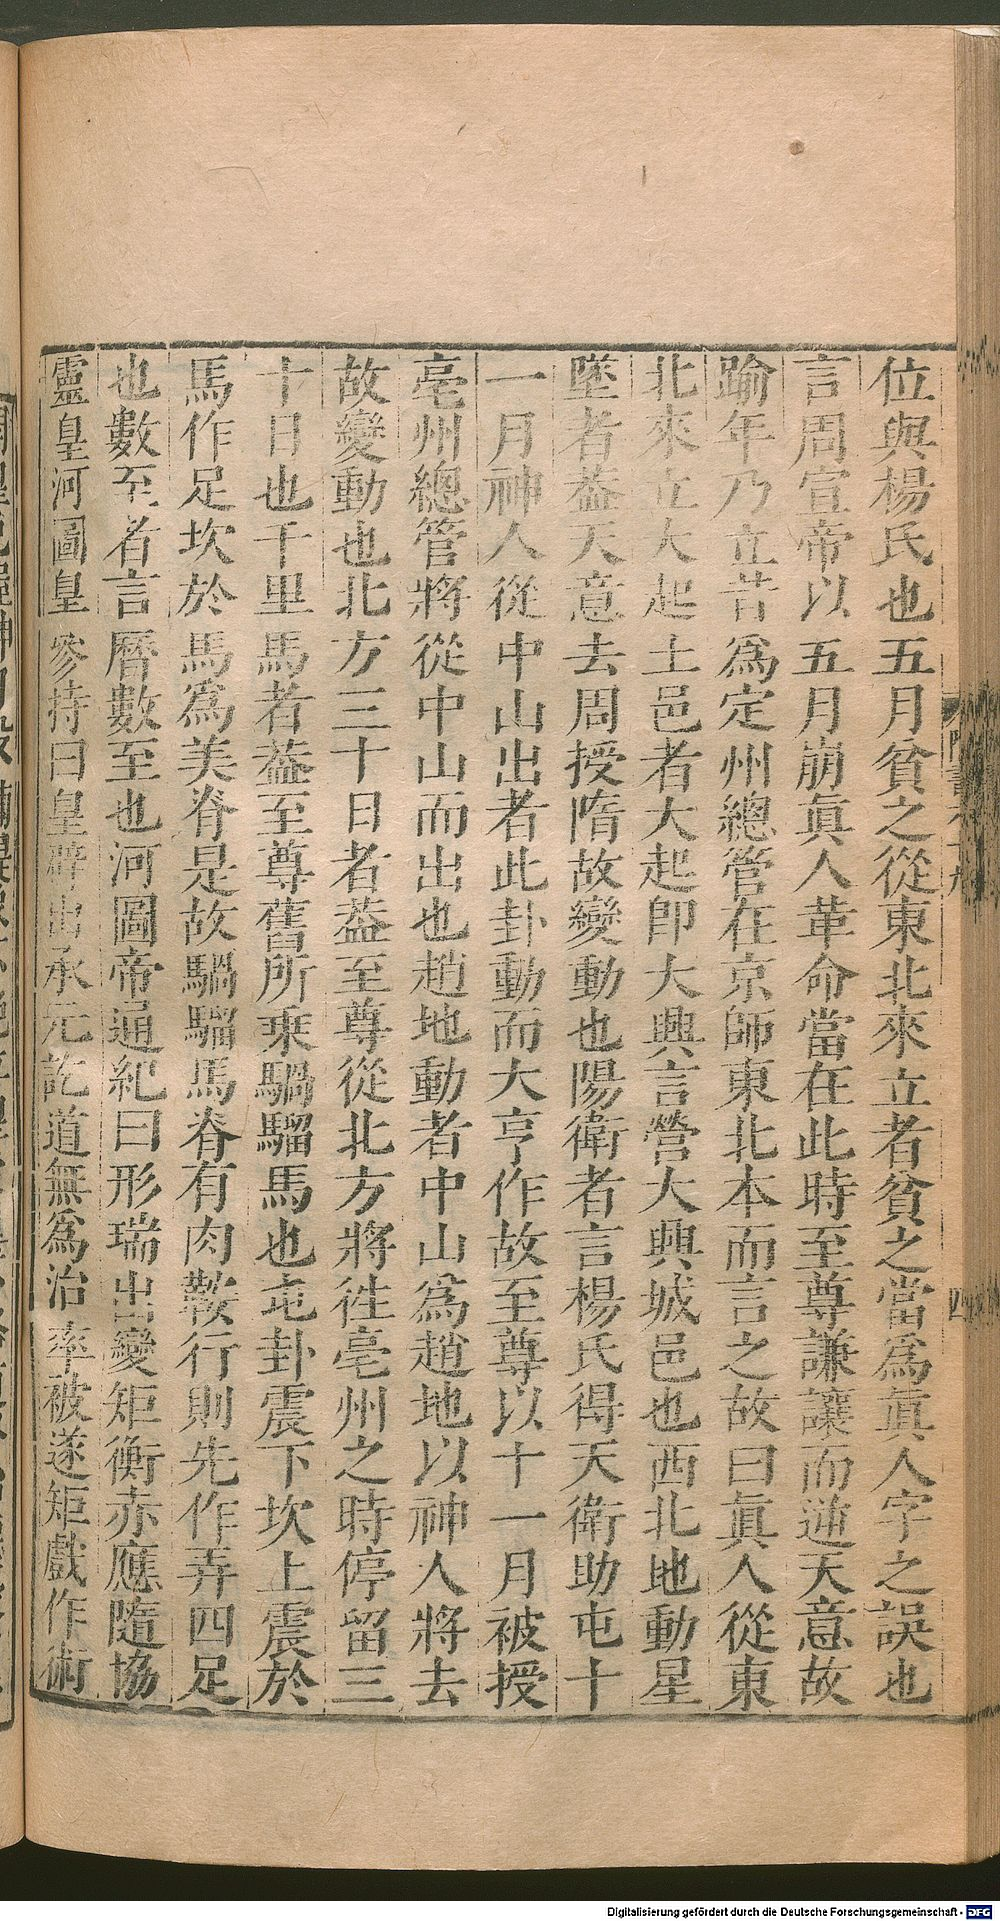 位與楊氏也五月貧之從東北來立者貧之當爲眞人字之誤也
言周宣帝以五月崩眞人革命當在此時至尊謙讓而逆天意故
踰年乃立昔爲定州總管在京師東北本而言之故曰眞人從東
北來立大起土邑者大起卽大興言營大興城邑也西北地動星
墜者葢天意去周授隋故變動也陽衛者言楊氏得天衛助屯十
一月神人從中山出者此卦動而大亨作故至尊以十一月被授
亳州總管將從中山而出也趙地動者中山爲趙地以神人將去
故變動也北方三十日者葢至尊從北方將徃亳州之時停留三
十日也千里馬者葢至尊舊所乘騧騮馬也屯卦震下坎上震於
馬作足坎於馬爲美脊是故騧騮馬脊有肉鞍行則先作弄四足
也數至者言曆數至也河圖帝通紀曰形瑞出變矩衡赤應隨協
靈皇河圖皇參持曰皇辟出承元訖道無爲治率被遂矩戲作術
隋書六十九
四
Digitalisierung gefördert durch die Deutsche Forschungsgemeinschaft - DFG